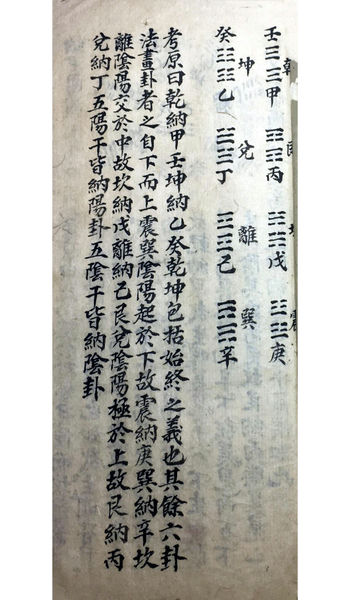 乾 震
壬☰☰甲 ☶☶丙 ☵☵戊 ☳☳庚
坤 兌 離 巽
癸☷☷乙 ☱☱丁 ☲☲己 ☴☴辛
考原曰乾納甲壬坤納乙癸乾坤包括始終之義也其餘六卦
法畫卦者之自下而上震巽陰陽起於下故震納庚巽納辛坎
離陰陽交於中故坎納戊離納己艮兌陰陽極於上故艮納丙
兌納丁五陽干皆納陽卦五陰干皆納陰卦